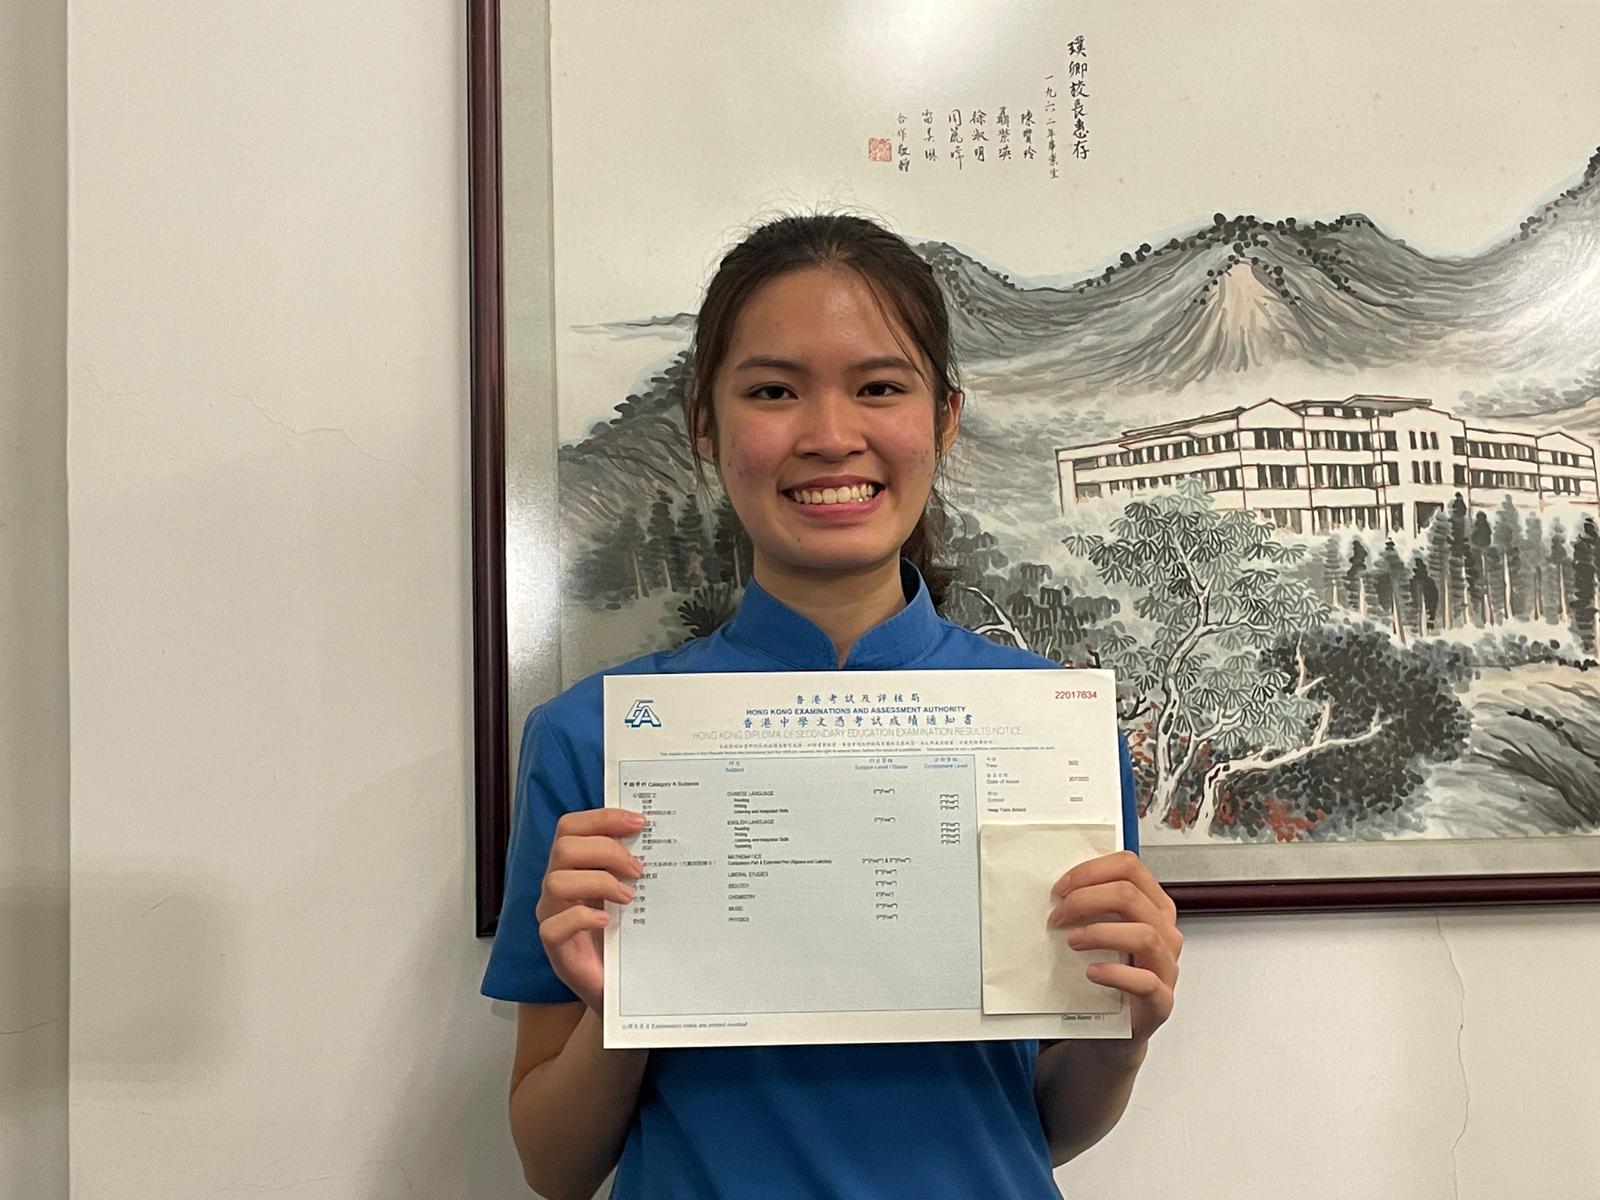 璞卿校長惠存
一九六二年畢業生
陳寶玲
聶紫瑛
徐淑明
雷美琳
合作敬贈
22017634
香港考試及評核局
HONG KONG EXAMINATIONS AND ASSESSMENT AUTHORITY
香港中學文憑考試成績通知書
HONG KONG DIPLOMA OF SECONDARY EDUCATION EXAMINATION RESULTS NOTICE
科目
Subject
科目等級
Subject Level / Grade
分部等級
Component Level
年份
Year
2022
簽發日期
Date of Issue
20/7/2022
學校
School
Heep Yunn School
甲類學科 Category A Subjects
中國語文
CHINESE LANGUAGE
5**(Five**)
Reading
Writing
Listening and Integrated Skills
ENGLISH LANGUAGE
5**(Five**)
Reading
Writing
Listening and Integrated Skills
Speaking
MATHEMATICS
Compulsory Part & Extended Part (Algebra and Calculus)
5**(Five**) & 5**(Five**)
LIBERAL STUDIES
5**(Five**)
BIOLOGY
5**(Five**)
CHEMISTRY
5**(Five**)
MUSIC
5**(Five**)
PHYSICS
5**(Five**)
Explanatory notes are printed overleaf